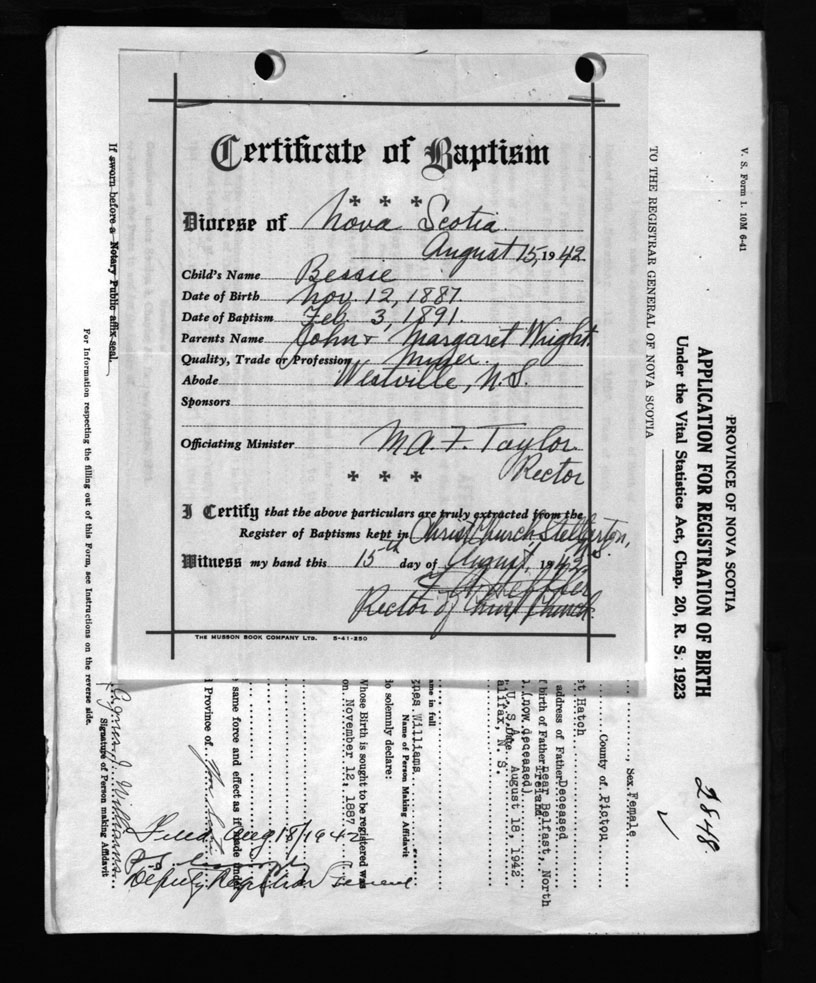 Certificate of Baptism
Diocese of Nova Scotia
August 15, 1942
Child's Name Bessie
Date of Birth Nov. 12, 1887.
Date of Baptism Feb. 3, 1891.
Parents Name John & Margaret Wright.
Quality, Trade or Profession Miner.
Abode Westville, N.S.
Sponsors
Officiating Minister M A. F. Taylor
Rector
I Certify that the above particulars are truly extracted from the
Register of Baptisms kept in Christ Church Stellarton, N.S.
Witness my hand this 15th day of August, 1942
Rector of Christ Church.
THE MUSSON BOOK COMPANY LTD. 5-41-250
V. S. Form 1. 10M 6-41
PROVINCE OF NOVA SCOTIA
APPLICATION FOR REGISTRATION OF BIRTH
Under the Vital Statistics Act, Chap. 20, R. S. 1923
2848
TO THE REGISTRAR GENERAL OF NOVA SCOTIA
, Sex Female
County of Pictou
et Hatch
address of Father Deceased
birth of Father near Belfast, North
Ireland
(now deceased)
U. S. Date August 18, 1942
alifax, N. S.
ame in full
gnes Williams
Name of Person Making Affidavit
do solemnly declare:
Whose Birth is sought to be registered was
on November 12, 1887
same force and effect as if made under
d Province of Nova Scotia
Agnes J. Williams
Signature of Person making Affidavit
Filed Aug 18/1942
Deputy Registrar General
If sworn before a Notary Public affix seal.
For Information respecting the filling out of this Form, see Instructions on the reverse side.